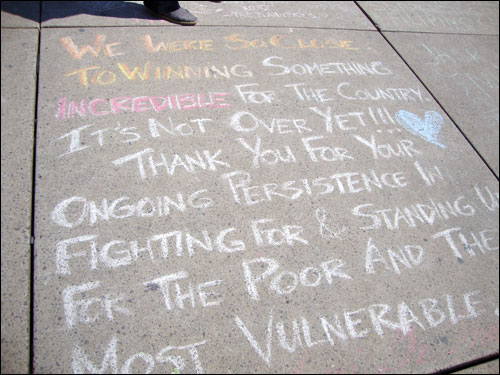 We Were So Close
To Winning Something
Incredible For The Country.
It's Not Over Yet!!!
Thank You For Your
Ongoing Persistence In
Fighting For & Standing U
For The Poor And The
Most Vulnerable.